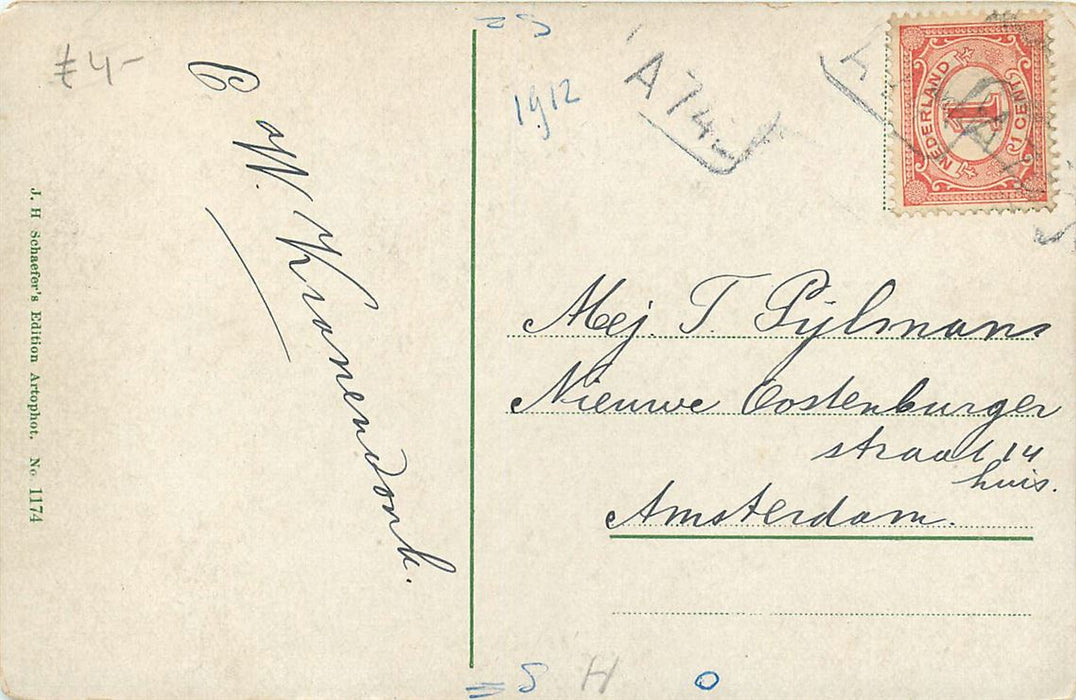 £4-
C. W. Kranendonk.
J. H Schaefer's Edition Artophot. No 1174
1912
A 74.
NEDERLAND
1
CENT
Mej. T. Pijlmans
Nieuwe Oostenburger
straat 14
huis.
Amsterdam.
= S H O